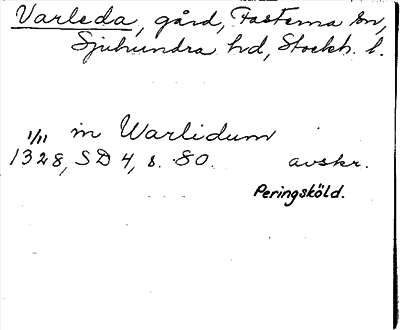 Varleda, gård, Fasterna sn,
Sjuhundra hd, Stockh. l.
1/11 in Warlidum
1328, SD 4, s. 80. avskr.
Peringsköld.